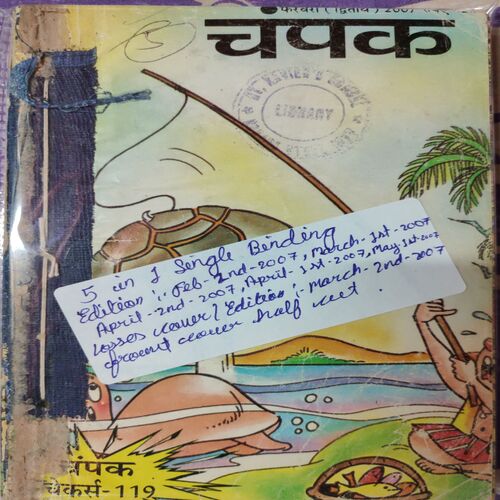 फरवरी (द्वितीय) 2007
चंपक
LIBRARY
5 in 1 Single Binding
Edition :. Feb-2nd-2007, March-1st-2007
April-2nd-2007, April-1st-2007, May 1st-2007
Losses cover/Edition :- March-2nd-2007
front cover half cut.
चंपक
चेकर्स-119